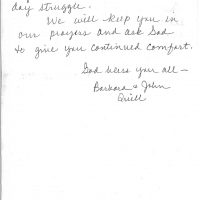 day struggle.
We will keep you in
our prayers and ask God
to give you continued comfort.
God bless you all —
Barbara & John
Quill